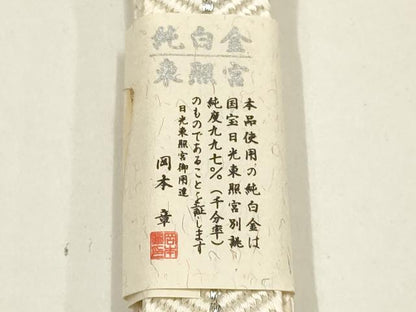 純白金
東照宮
本品使用の純白金は
国宝日光東照宮別誂
純度九九七％（千分率）
のものであることを証します
日光東照宮御用達
岡本 章